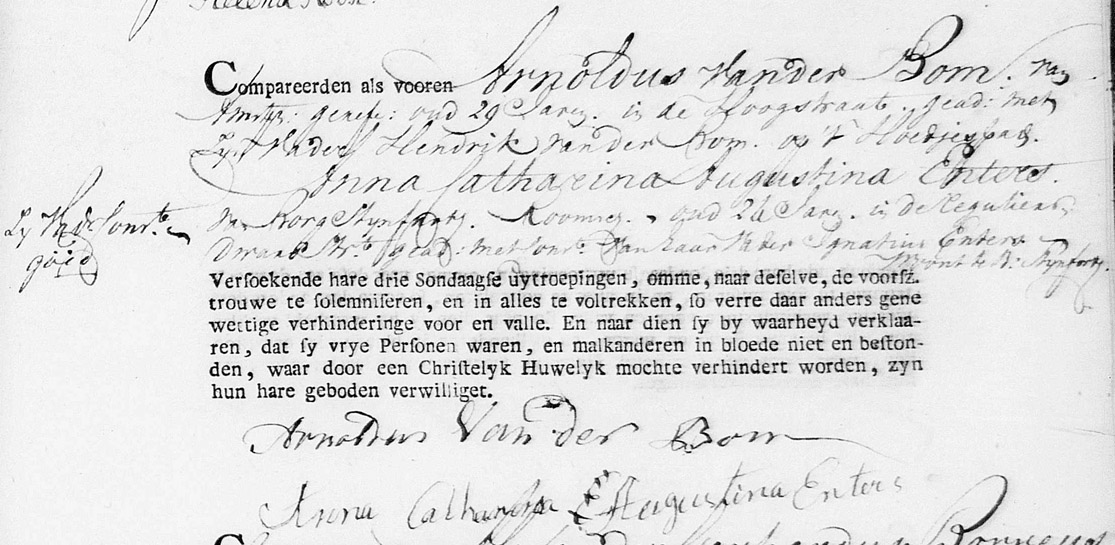 Helena
Compareerden als vooren Arnoldus van der Bom. van
Amst: geref: oud 29 Jaren. in de Hoogstraat. gead: met
Zyn Vader Hendrik van der Bom. op 't Hoedjespad.
Anna Catharina Augustina Enters.
Zy Vad: Cons:te
goed
van Borg Stynfurt. Rooms. oud 24 Jaren. in de Reguliers
Dwars Str:t gead: met Cons:t van haar Vader Ignatius Enters
Woont te B: Stynfurt.
Versoekende hare drie Sondaagse uytroepingen, omme, naar deselve, de voorsz.
trouwe te solemniseren, en in alles te voltrekken, so verre daar anders gene
wettige verhinderinge voor en valle. En naar dien sy by waarheyd verklaa-
ren, dat sy vrye Personen waren, en malkanderen in bloede niet en beston-
den, waar door een Christelyk Huwelyk mochte verhindert worden, zyn
hun hare geboden verwilliget.
Arnoldus Van der Bom
Anna Catharina Augustina Enters